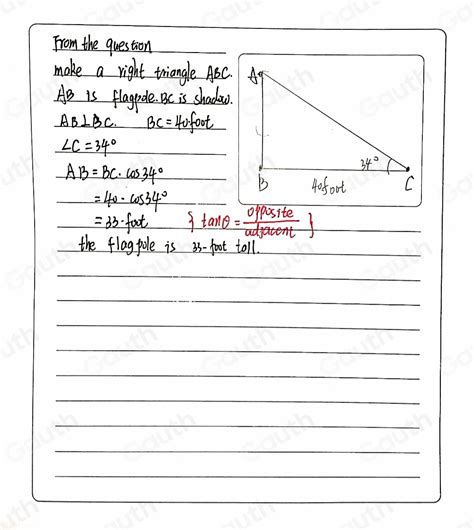 From the question
make a right triangle ABC.
AB is flagpole. BC is shadow.
AB⊥BC. BC=40foot
∠C=34°
AB=BC·cos34°
=40·cos34°
=33-foot { tanθ = opposite / adjacent }
the flagpole is 33-foot tall.
A
34°
B 40foot C
Gauth